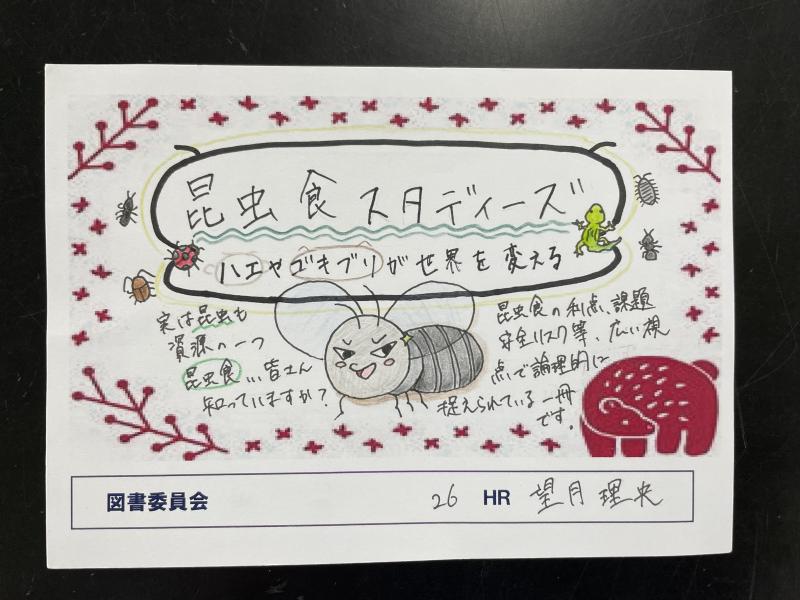 昆虫食スタディーズ
ハエやゴキブリが世界を変える
実は昆虫も
資源の一つ
昆虫食…皆さん
知っていますか？
昆虫食の利点、課題
安全リスク等、広い視
点で論理的に
捉えられている一冊
です。
図書委員会 26 HR 望月理央